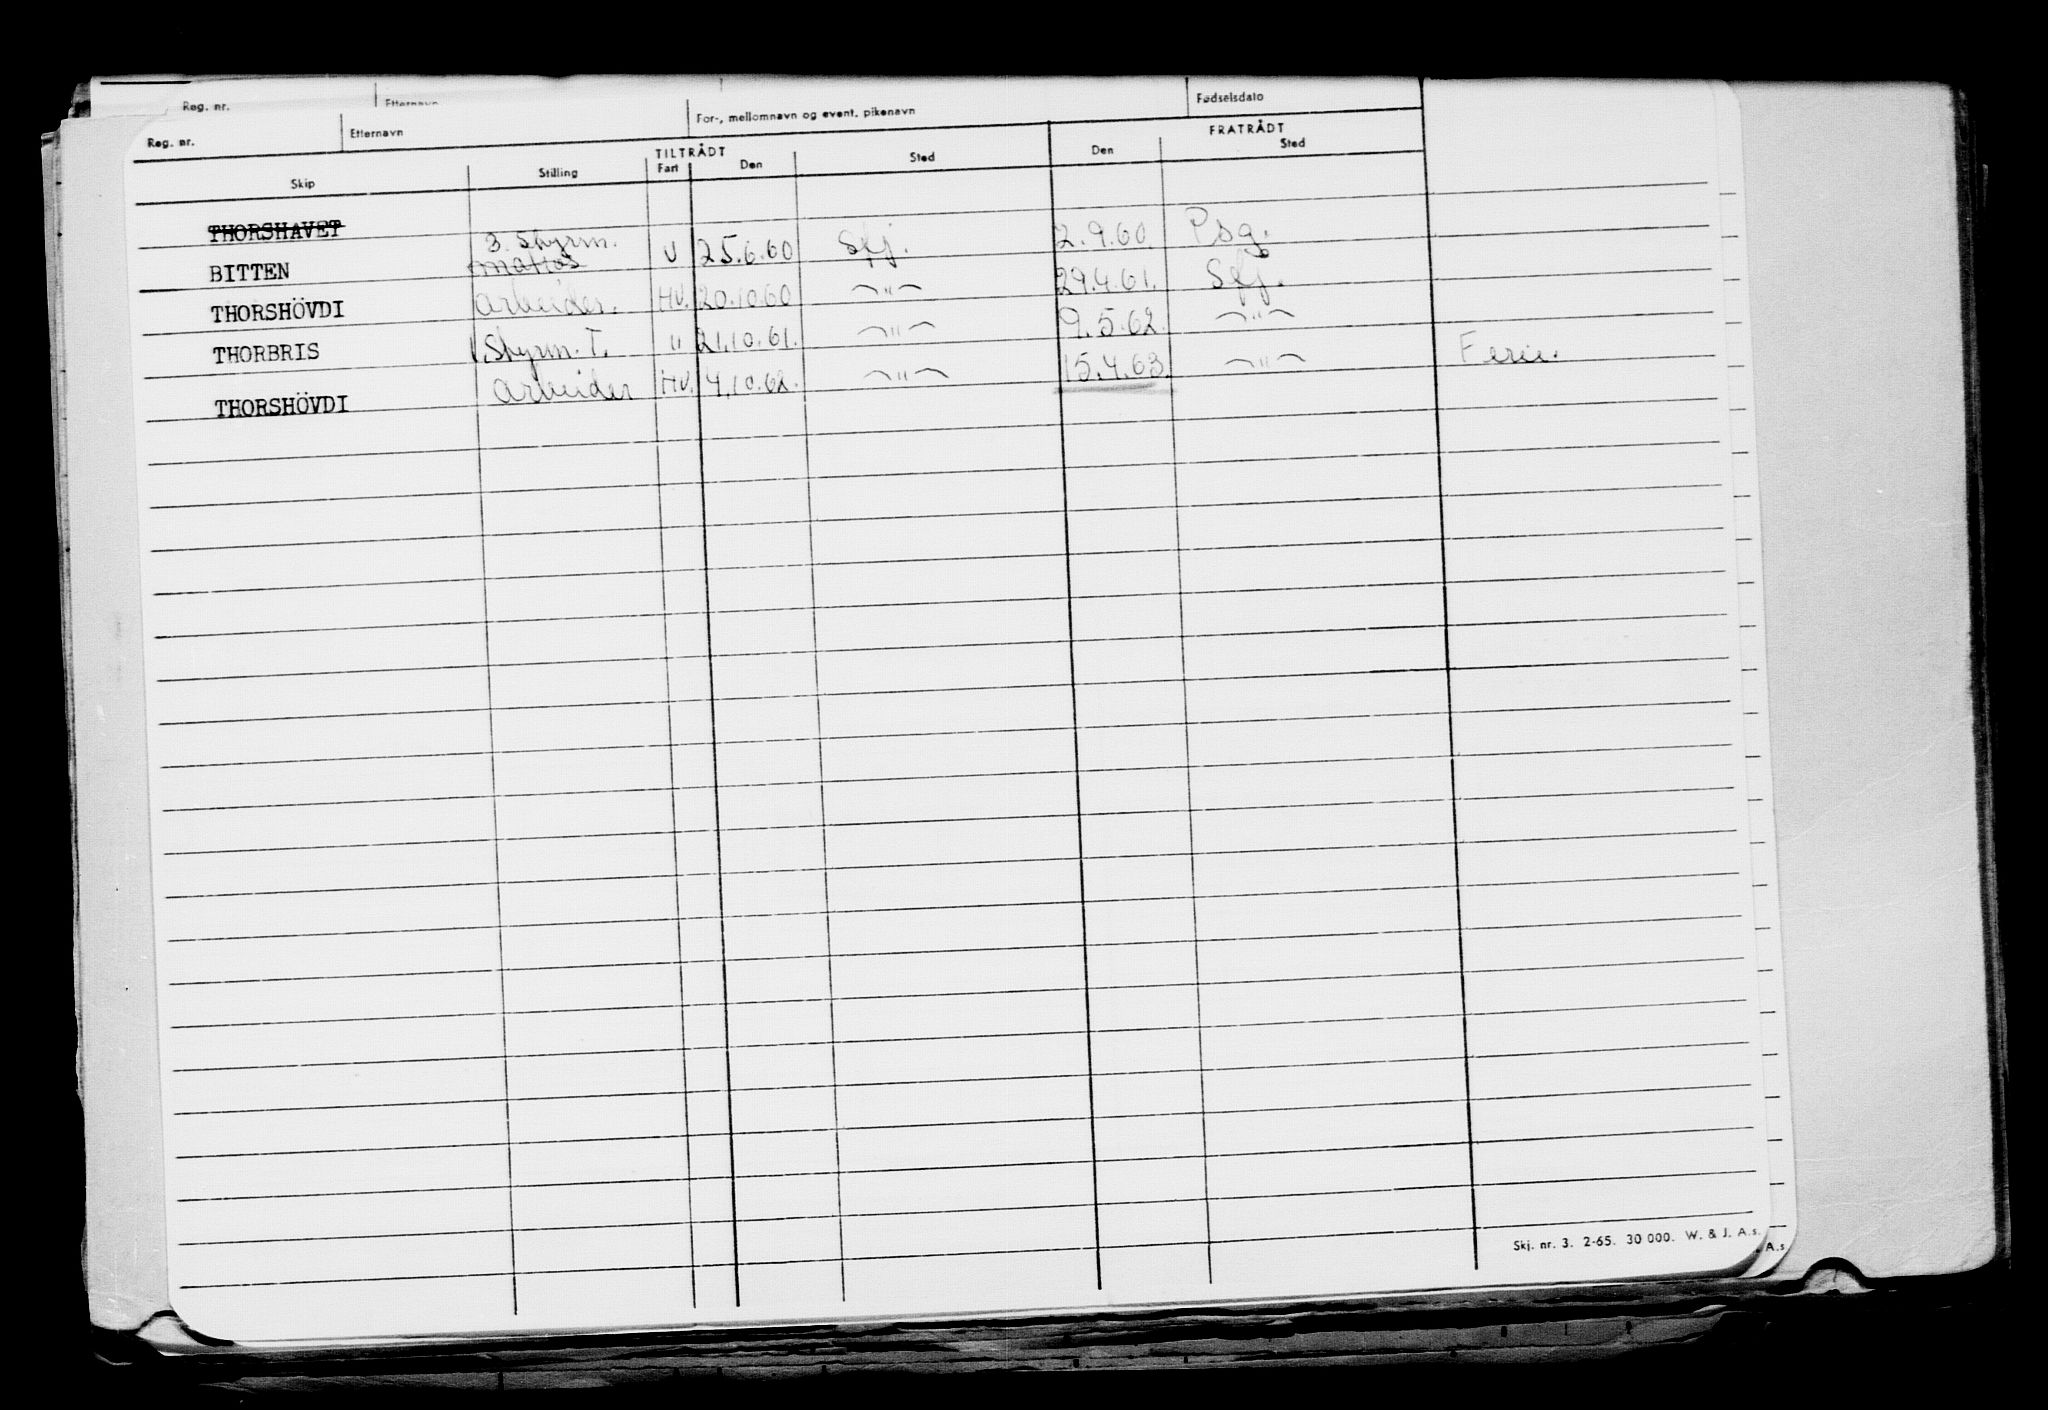 Reg. nr. Etternavn
For-, mellomnavn og event. pikenavn Fødselsdato
Reg. nr. Etternavn
TILTRÅDT FRATRÅDT
Skip Stilling Fart Den Sted Den Sted
THORSHAVET
BITTEN 3. Styrm. matros U 25.6.60 Sfj. 2.9.60 Psg.
THORSHÖVDI arbeider. HV. 20.10.60 —"— 29.4.61. Sfj.
THORBRIS Styrm. T. " 21.10.61. —"— 9.5.62. —"—
THORSHÖVDI arbeider HV. 4.10.62. —"— 15.4.63. —"— Ferie.
Skj. nr. 3. 2-65. 30 000. W. & J. A.s.
A.s